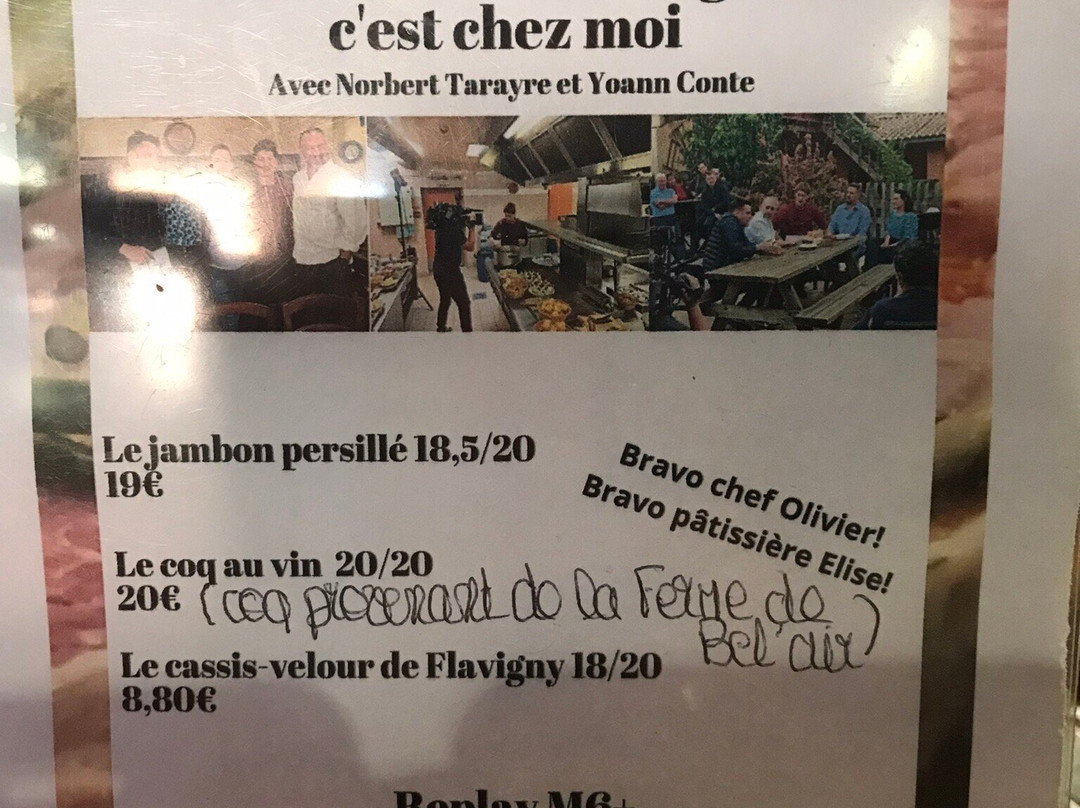 c'est chez moi
Avec Norbert Tarayre et Yoann Conte
Le jambon persillé 18,5/20
19€
Bravo chef Olivier!
Bravo pâtissière Elise!
Le coq au vin 20/20
20€ (coq provenant de la Ferme de
Bel'air)
Le cassis-velour de Flavigny 18/20
8,80€
Replay M6+